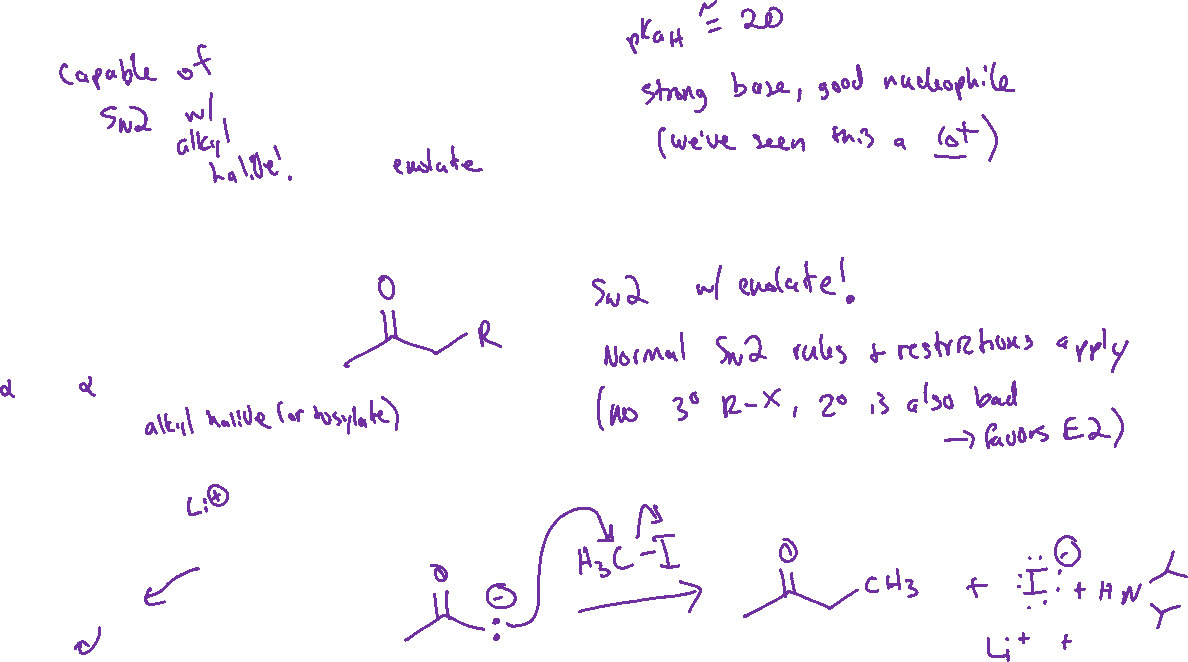 pKaH ≅ 20
Capable of
SN2 w/
alkyl
halide!
strong base, good nucleophile
(we've seen this a lot)
enolate
O
R
SN2 w/ enolate!
Normal SN2 rules + restrictions apply
(no 3° R-X, 2° is also bad
→ favors E2)
α α
alkyl halide (or tosylate)
Li⊕
O ⊖ H3C-I
O CH3 + I ⊖ + HN
Li+ +